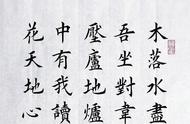 木落水盡
吾坐對韋
壓廬地爐
中有我讀
花天地心